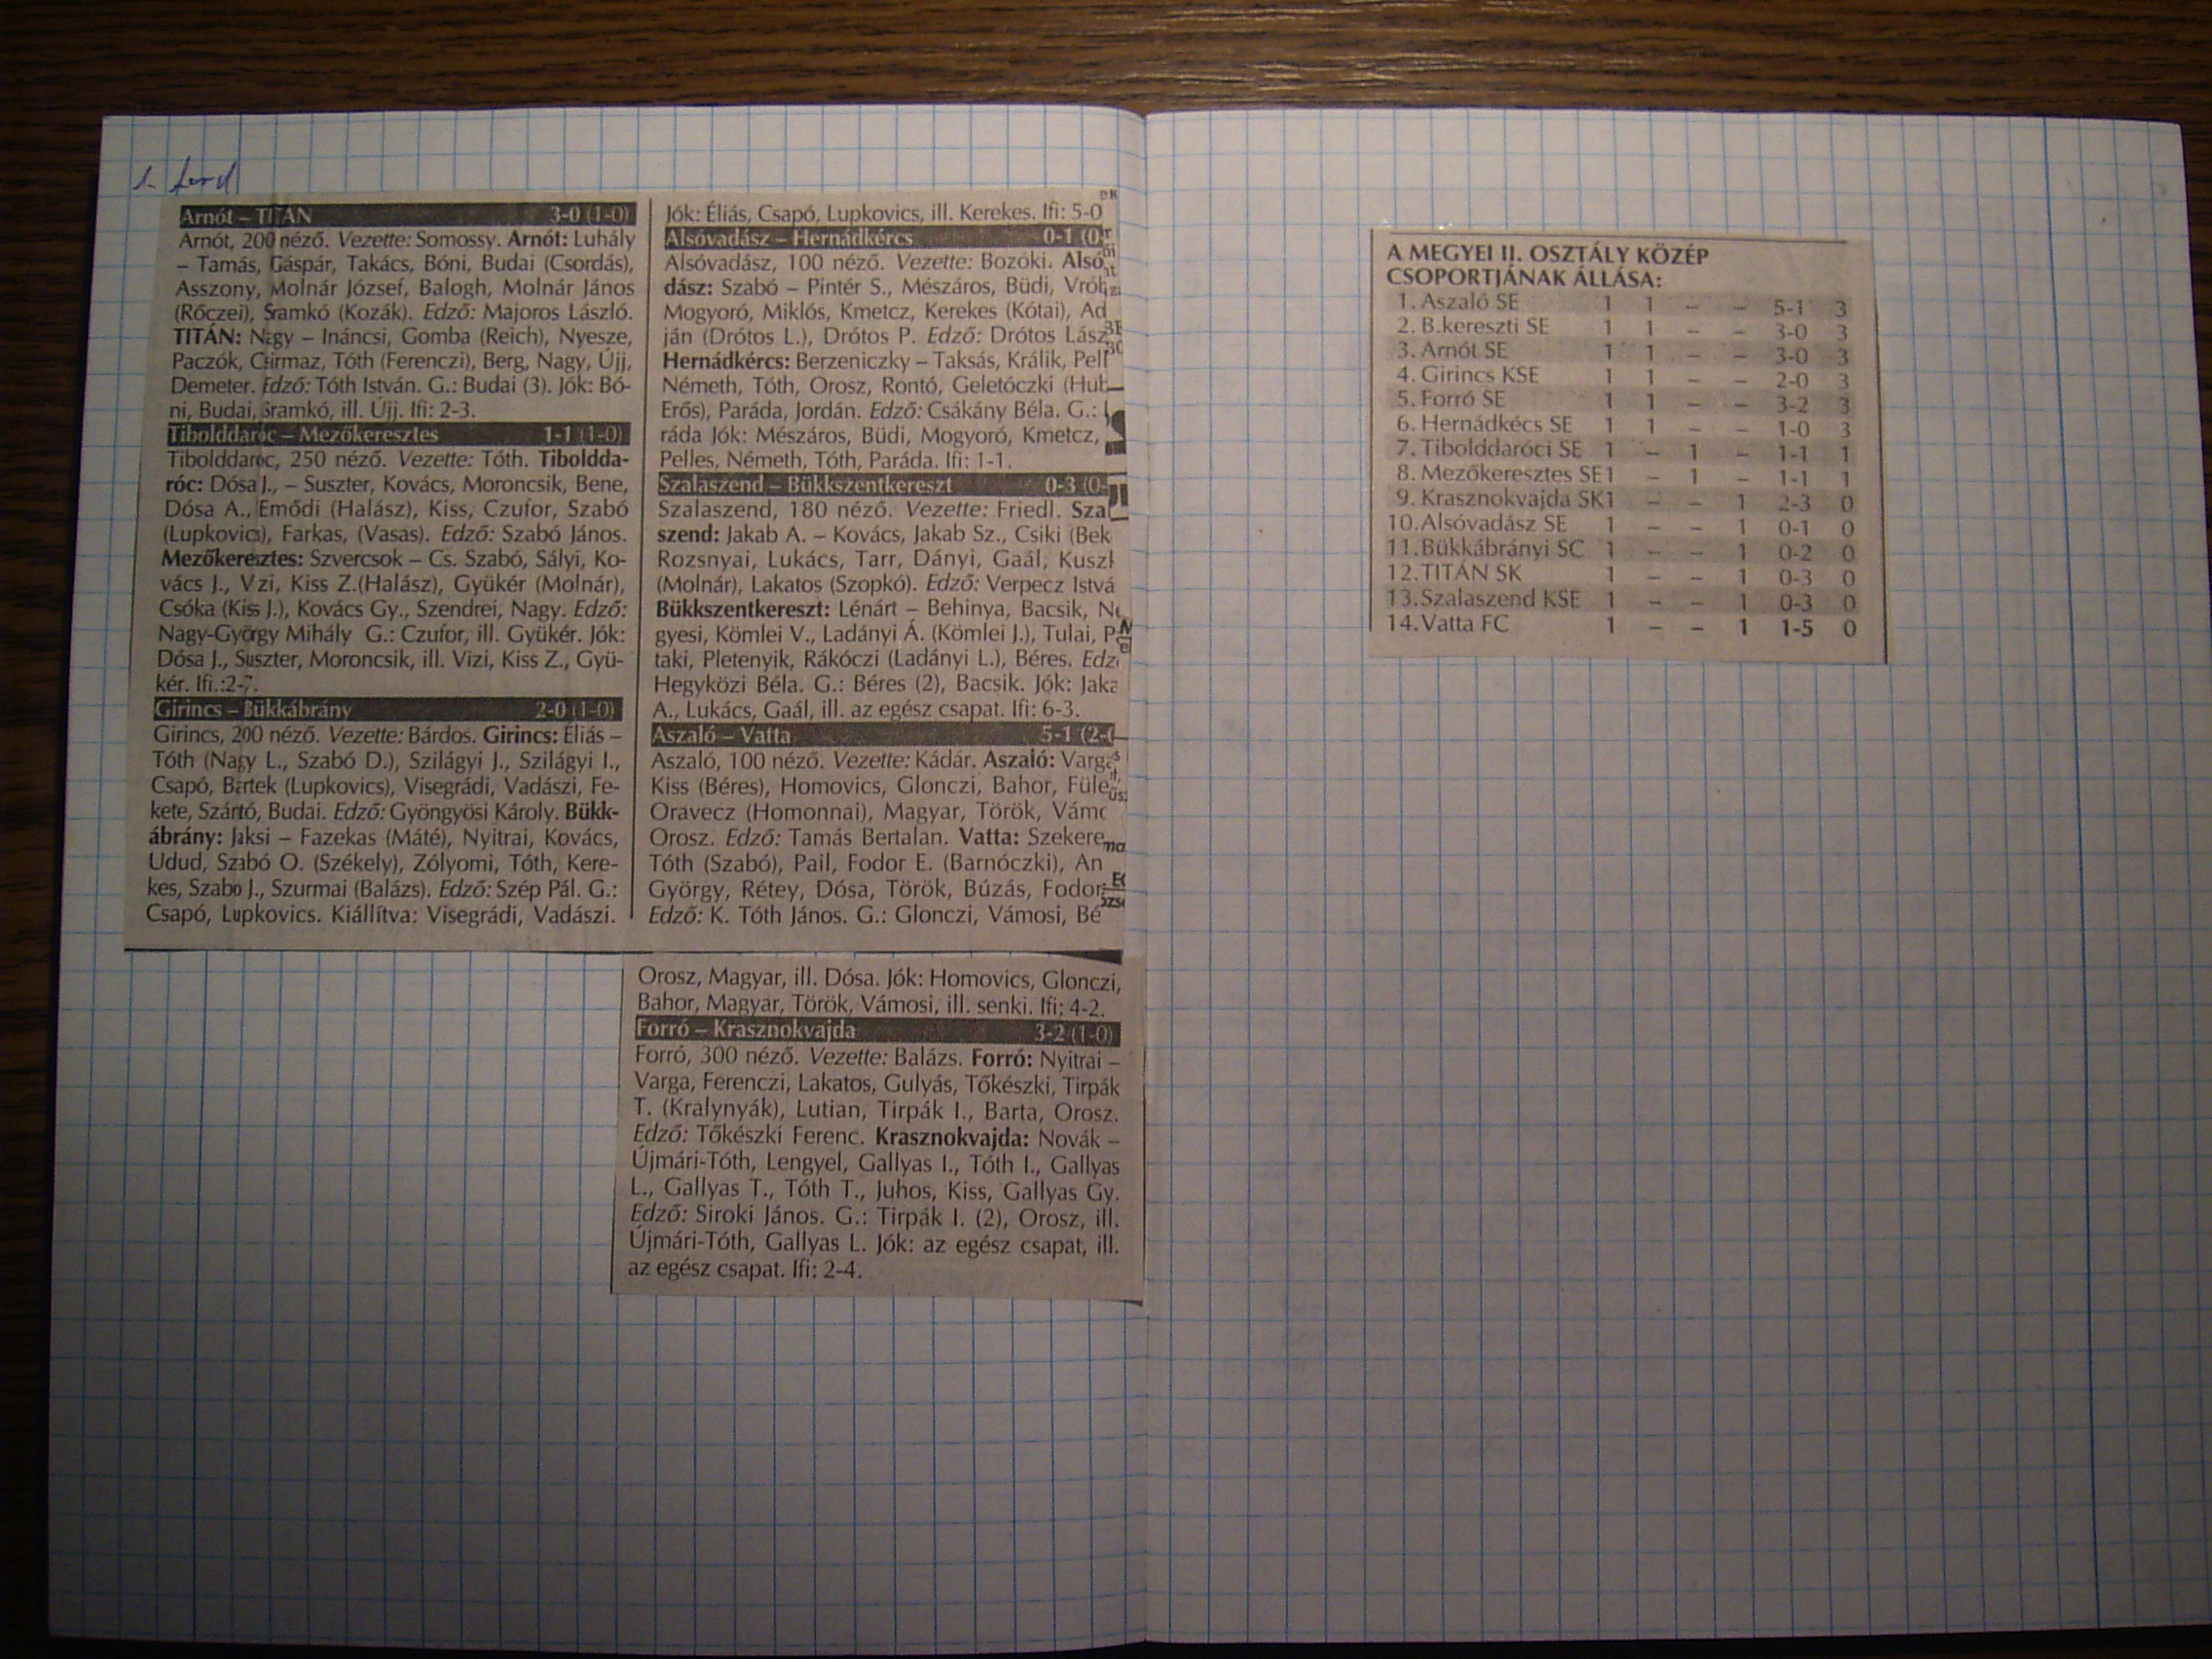 1. ford
Arnót – TITÁN 3-0 (1-0)
Arnót, 200 néző. Vezette: Somossy. Arnót: Luhály
– Tamás, Gáspár, Takács, Bóni, Budai (Csordás),
Asszony, Molnár József, Balogh, Molnár János
(Rőczei), Sramkó (Kozák). Edző: Majoros László.
TITÁN: Nagy – Ináncsi, Gomba (Reich), Nyesze,
Paczók, Csirmaz, Tóth (Ferenczi), Berg, Nagy, Újj,
Demeter. Edző: Tóth István. G.: Budai (3). Jók: Bó-
ni, Budai, Sramkó, ill. Újj. Ifi: 2-3.
Tibolddaróc – Mezőkeresztes 1-1 (1-0)
Tibolddaróc, 250 néző. Vezette: Tóth. Tiboldda-
róc: Dósa J., – Suszter, Kovács, Moroncsik, Bene,
Dósa A., Emődi (Halász), Kiss, Czufor, Szabó
(Lupkovics), Farkas, (Vasas). Edző: Szabó János.
Mezőkeresztes: Szvercsok – Cs. Szabó, Sályi, Ko-
vács J., Vizi, Kiss Z.(Halász), Gyükér (Molnár),
Csóka (Kiss J.), Kovács Gy., Szendrei, Nagy. Edző:
Nagy-György Mihály G.: Czufor, ill. Gyükér. Jók:
Dósa J., Suszter, Moroncsik, ill. Vizi, Kiss Z., Gyü-
kér. Ifi.:2-7.
Girincs – Bükkábrány 2-0 (1-0)
Girincs, 200 néző. Vezette: Bárdos. Girincs: Éliás –
Tóth (Nagy L., Szabó D.), Szilágyi J., Szilágyi I.,
Csapó, Bartek (Lupkovics), Visegrádi, Vadászi, Fe-
kete, Szántó, Budai. Edző: Gyöngyösi Károly. Bükk-
ábrány: Jaksi – Fazekas (Máté), Nyitrai, Kovács,
Udud, Szabó O. (Székely), Zólyomi, Tóth, Kere-
kes, Szabó J., Szurmai (Balázs). Edző: Szép Pál. G.:
Csapó, Lupkovics. Kiállítva: Visegrádi, Vadászi.
Jók: Éliás, Csapó, Lupkovics, ill. Kerekes. Ifi: 5-0
Alsóvadász – Hernádkércs 0-1 (0-
Alsóvadász, 100 néző. Vezette: Bozóki. Alsó
dász: Szabó – Pintér S., Mészáros, Büdi, Vról
Mogyoró, Miklós, Kmetcz, Kerekes (Kótai), Ad
ján (Drótos L.), Drótos P. Edző: Drótos Lász
Hernádkércs: Berzeniczky – Taksás, Králik, Pell
Németh, Tóth, Orosz, Rontó, Geletóczki (Hub
Erős), Paráda, Jordán. Edző: Csákány Béla. G.:
ráda Jók: Mészáros, Büdi, Mogyoró, Kmetcz,
Pelles, Németh, Tóth, Paráda. Ifi: 1-1.
Szalaszend – Bükkszentkereszt 0-3 (0-
Szalaszend, 180 néző. Vezette: Friedl. Sza
szend: Jakab A. – Kovács, Jakab Sz., Csiki (Bek
Rozsnyai, Lukács, Tarr, Dányi, Gaál, Kuszl
(Molnár), Lakatos (Szopkó). Edző: Verpecz Istvá
Bükkszentkereszt: Lénárt – Behinya, Bacsik, Ne
gyesi, Kömlei V., Ladányi Á. (Kömlei J.), Tulai, P
taki, Pletenyik, Rákóczi (Ladányi L.), Béres. Edz
Hegyközi Béla. G.: Béres (2), Bacsik. Jók: Jaka
A., Lukács, Gaál, ill. az egész csapat. Ifi: 6-3.
Aszaló – Vatta 5-1 (2-
Aszaló, 100 néző. Vezette: Kádár. Aszaló: Varga
Kiss (Béres), Homovics, Glonczi, Bahor, Füle
Oravecz (Homonnai), Magyar, Török, Vámo
Orosz. Edző: Tamás Bertalan. Vatta: Szekere
Tóth (Szabó), Pail, Fodor E. (Barnóczki), An
György, Rétey, Dósa, Török, Búzás, Fodor
Edző: K. Tóth János. G.: Glonczi, Vámosi, Bé
Orosz, Magyar, ill. Dósa. Jók: Homovics, Glonczi,
Bahor, Magyar, Török, Vámosi, ill. senki. Ifi: 4-2.
Forró – Krasznokvajda 3-2 (1-0)
Forró, 300 néző. Vezette: Balázs. Forró: Nyitrai –
Varga, Ferenczi, Lakatos, Gulyás, Tőkészki, Tirpák
T. (Kralynyák), Lutian, Tirpák I., Barta, Orosz.
Edző: Tőkészki Ferenc. Krasznokvajda: Novák –
Újmári-Tóth, Lengyel, Gallyas I., Tóth I., Gallyas
L., Gallyas T., Tóth T., Juhos, Kiss, Gallyas Gy.
Edző: Siroki János. G.: Tirpák I. (2), Orosz, ill.
Újmári-Tóth, Gallyas L. Jók: az egész csapat, ill.
az egész csapat. Ifi: 2-4.
A MEGYEI II. OSZTÁLY KÖZÉP
CSOPORTJÁNAK ÁLLÁSA:
1. Aszaló SE 1 1 – – 5-1 3
2. B.kereszti SE 1 1 – – 3-0 3
3. Arnót SE 1 1 – – 3-0 3
4. Girincs KSE 1 1 – – 2-0 3
5. Forró SE 1 1 – – 3-2 3
6. Hernádkécs SE 1 1 – – 1-0 3
7. Tibolddaróci SE 1 – 1 – 1-1 1
8. Mezőkeresztes SE1 – 1 – 1-1 1
9. Krasznokvajda SK1 – – 1 2-3 0
10.Alsóvadász SE 1 – – 1 0-1 0
11.Bükkábrányi SC 1 – – 1 0-2 0
12.TITÁN SK 1 – – 1 0-3 0
13.Szalaszend KSE 1 – – 1 0-3 0
14.Vatta FC 1 – – 1 1-5 0